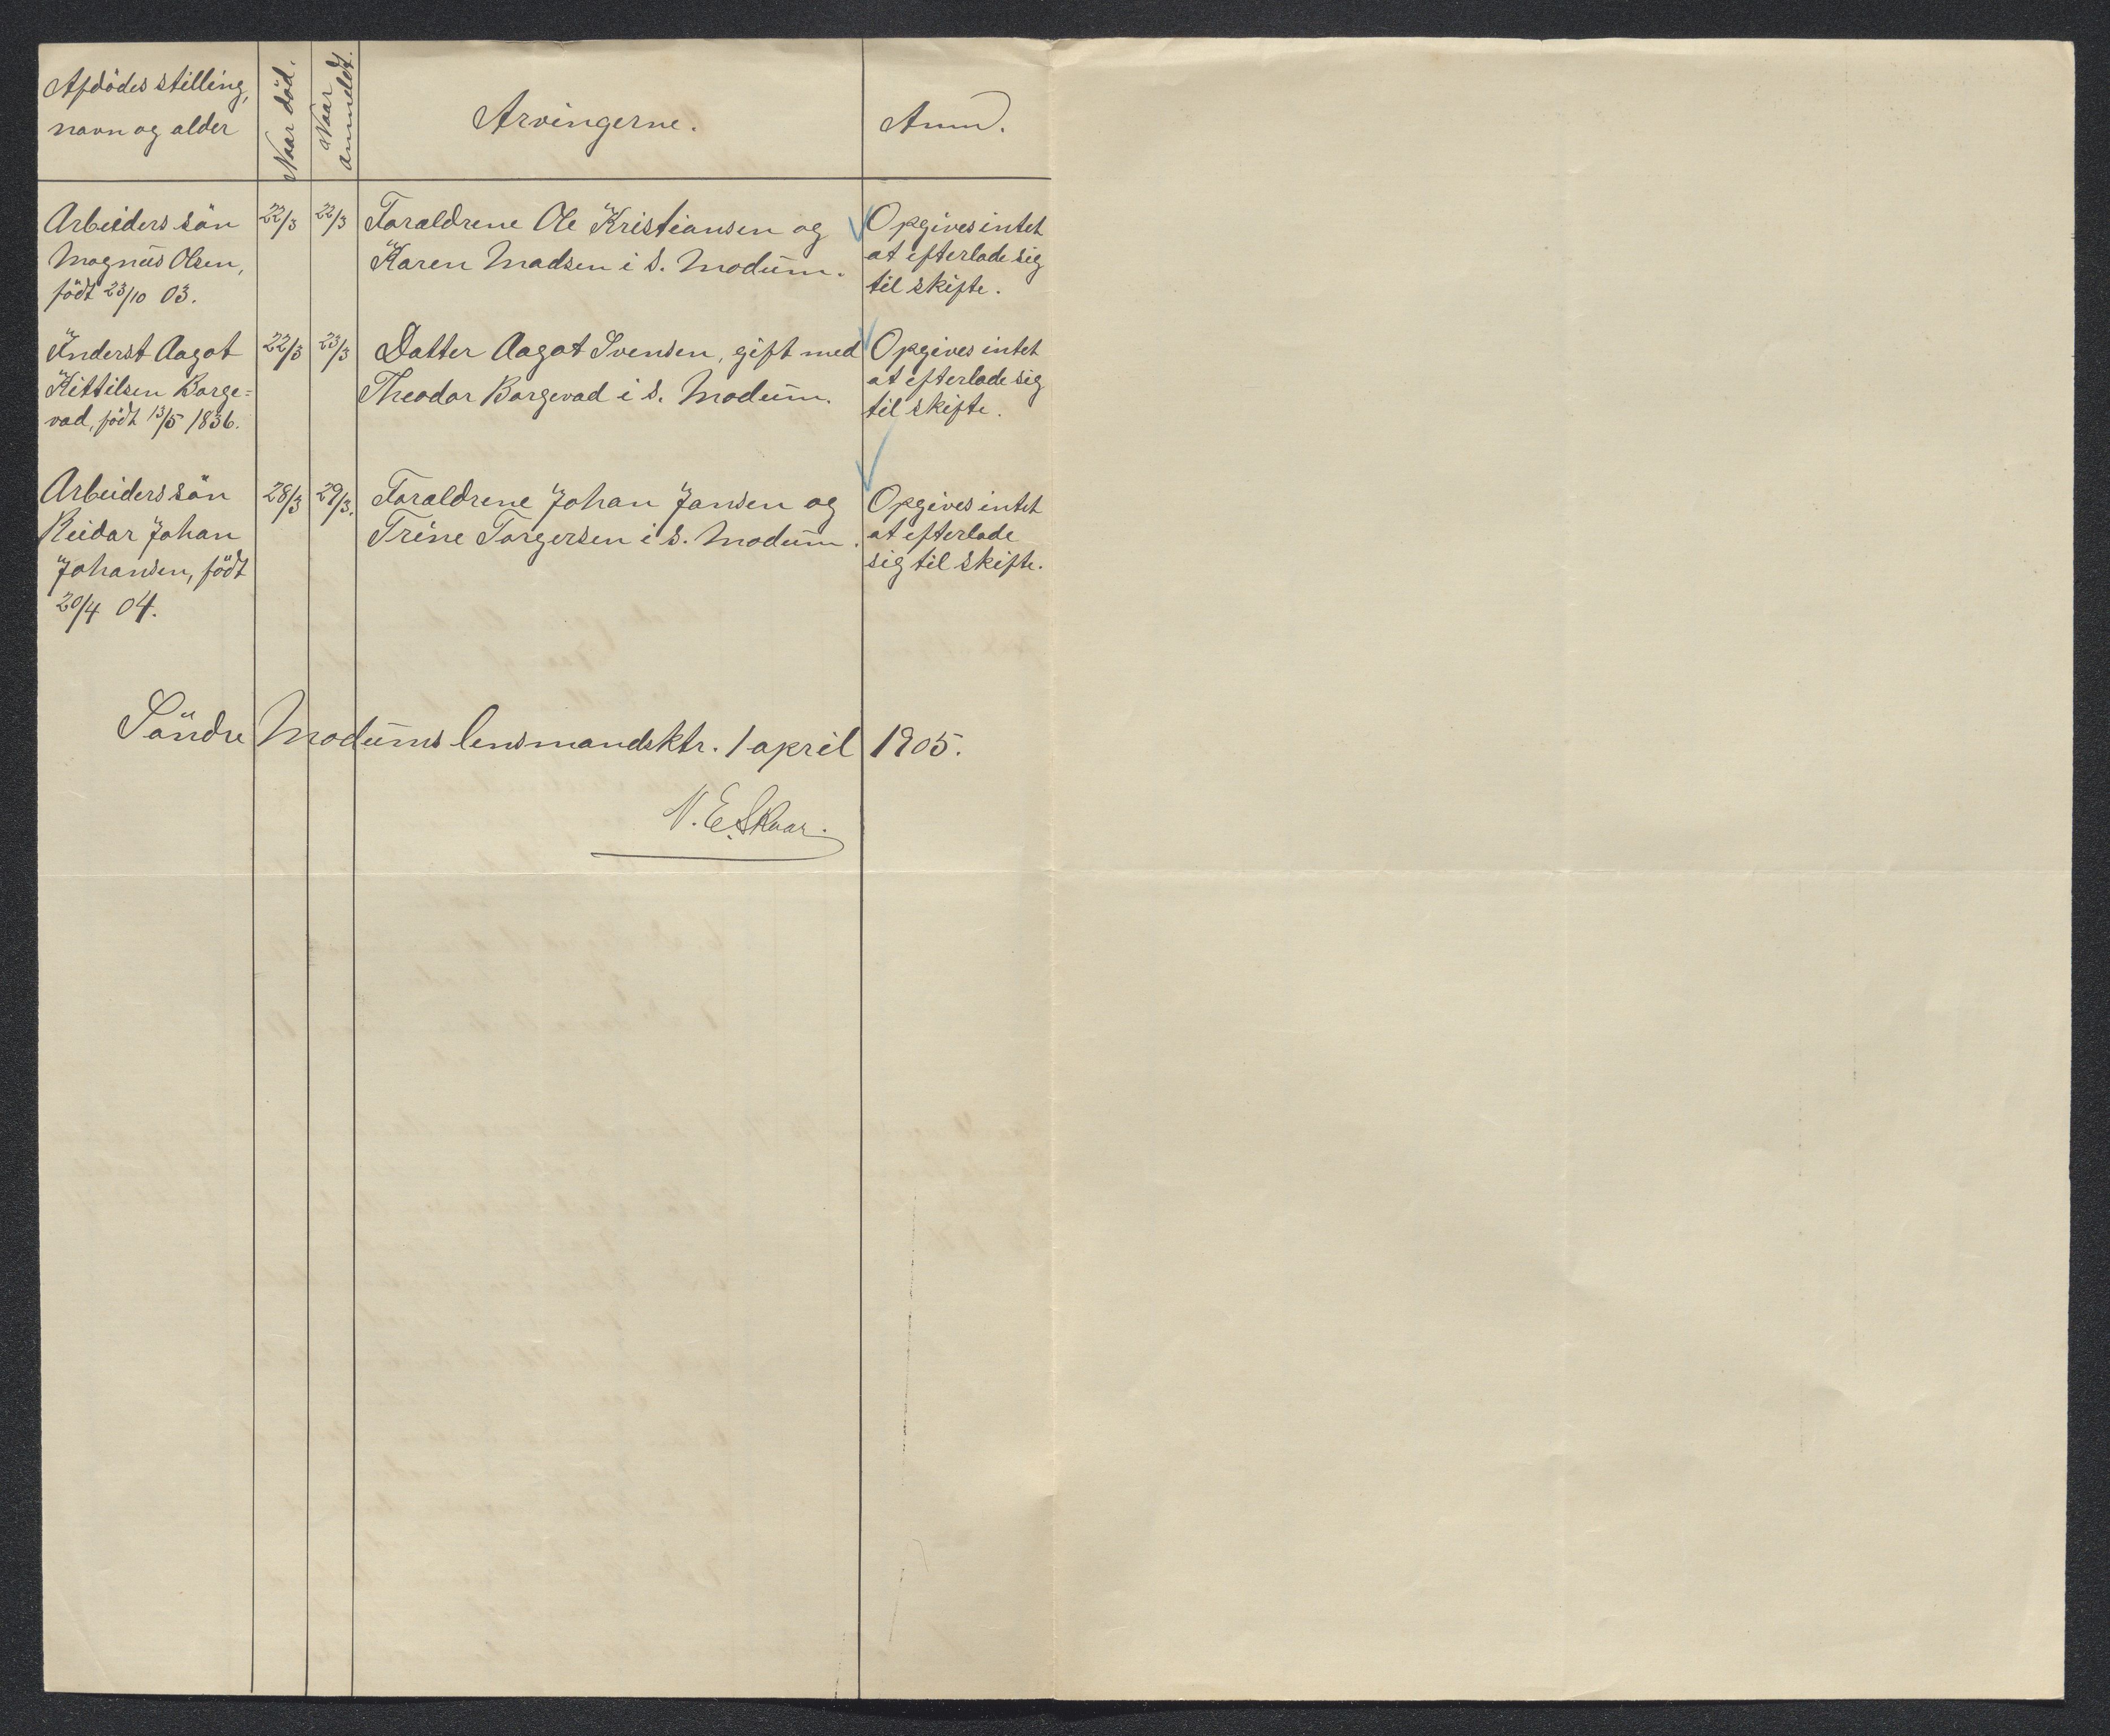 Afdödes stilling,
navn og alder
Naar död.
Naar
anmeldt.
Arvingerne.
Anm.
Arbeiders sön
Magnus Olsen,
födt 23/10 03.
22/3
22/3
Foraldrene Ole Kristiansen og
Karen Madsen i S. Modum.
Opgives intet
at efterlade sig
til skifte.
Inderst Aagot
Kittilsen Borge=
vad, födt 13/5 1836.
22/3
23/3
Datter Aagot Svensen, gift med
Theodor Borgevad i S. Modum.
Opgives intet
at efterlade sig
til skifte.
Arbeiders sön
Reidar Johan
Johansen, födt
20/4 04.
28/3
29/3.
Foraldrene Johan Jansen og
Trine Torgersen i S. Modum.
Opgives intet
at efterlade
sig til skifte.
Söndre Modums lensmandsktr. 1 april 1905.
N. E. Skaar.